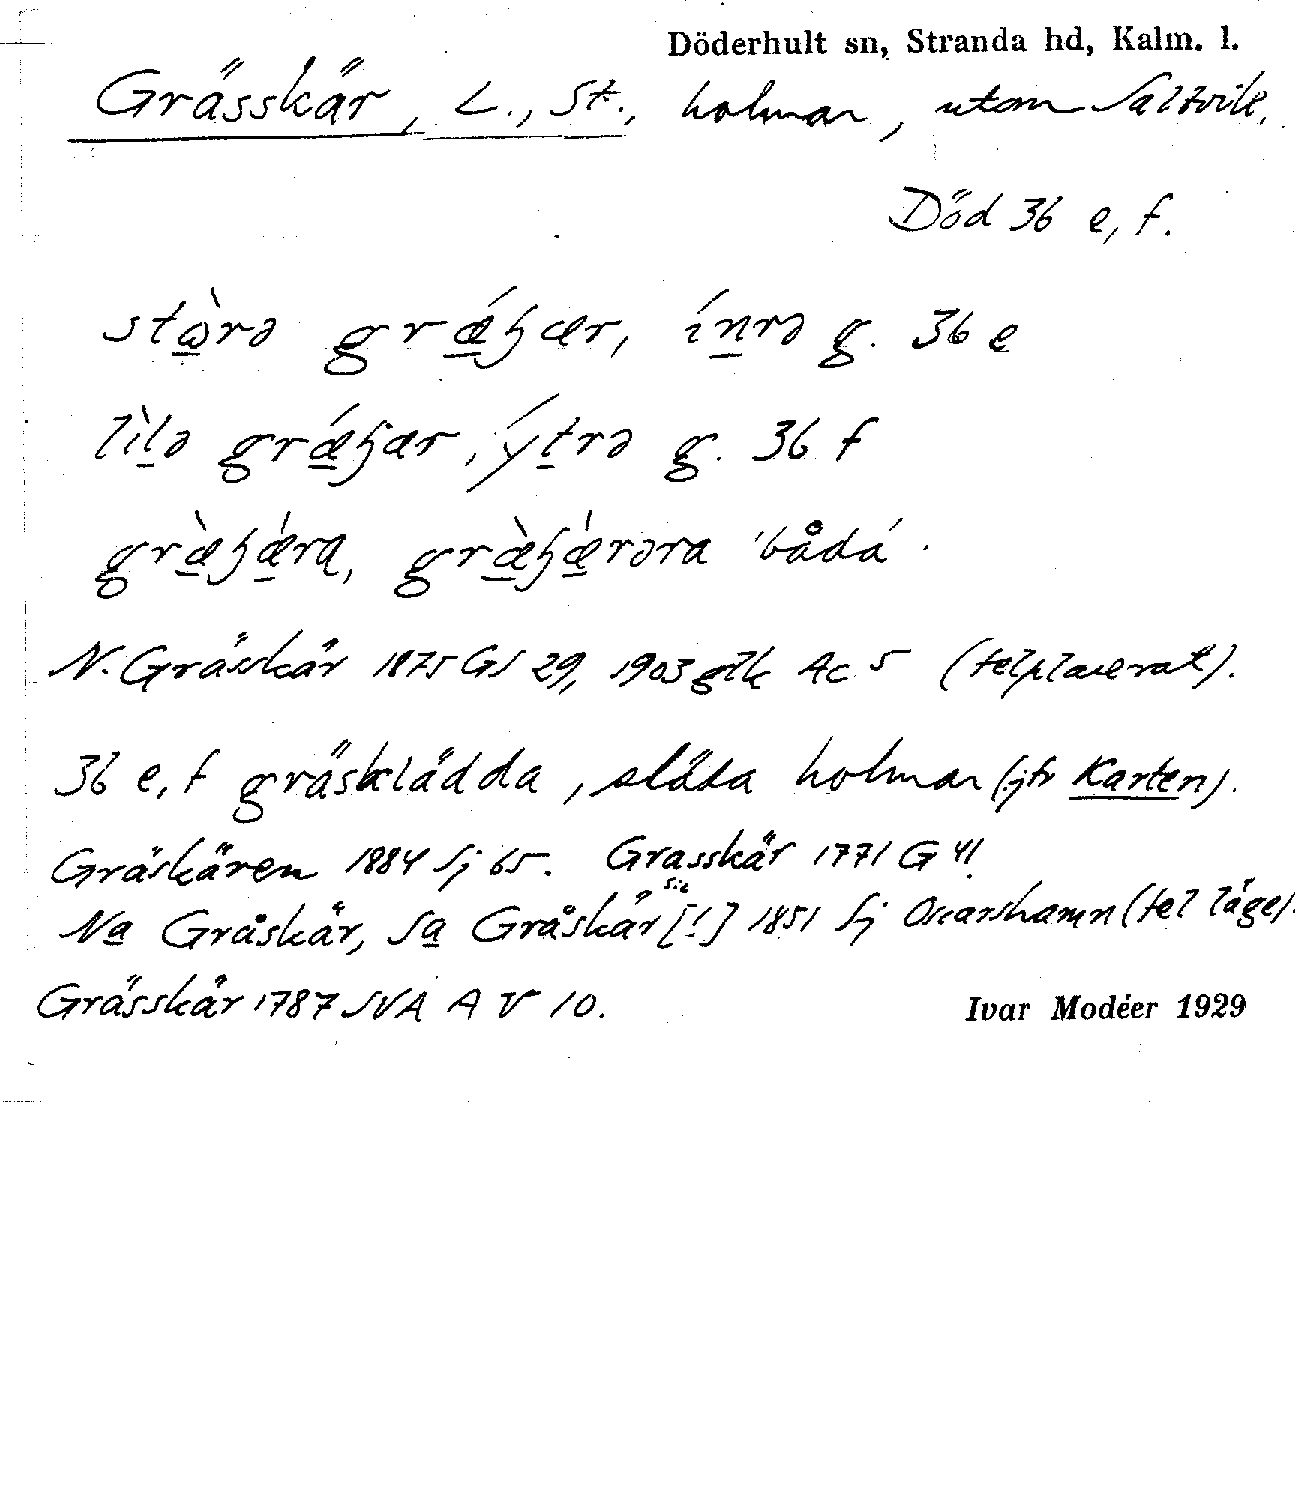 Döderhult sn, Stranda hd, Kalm. l.
Grässkär, L., St., holmar, utom Saltvik.
Död 36 e, f.
stὼ̱rə grǽ̱ɧær, ínrə g. 36 e
lìlə grǽ̱ɧær, ýtrə g. 36 f
græ̱̀ɧæ̱̀rą, græ̱̀ɧæ̱̀rəra 'båda'.
N. Gräskär 1875 GS 29, 1903 glk Ac 5 (felplacerat).
36 e, f gräsklädda, släta holmar (jfr Karten).
Gräskären 1884 Sj 65. Grasskär 1771 G 41.
Na Gråskär, Sa Gråskär sic [!] 1851 Sj Oscarshamn (fel läge).
Grässkär 1787 SVA A V 10.
Ivar Modéer 1929